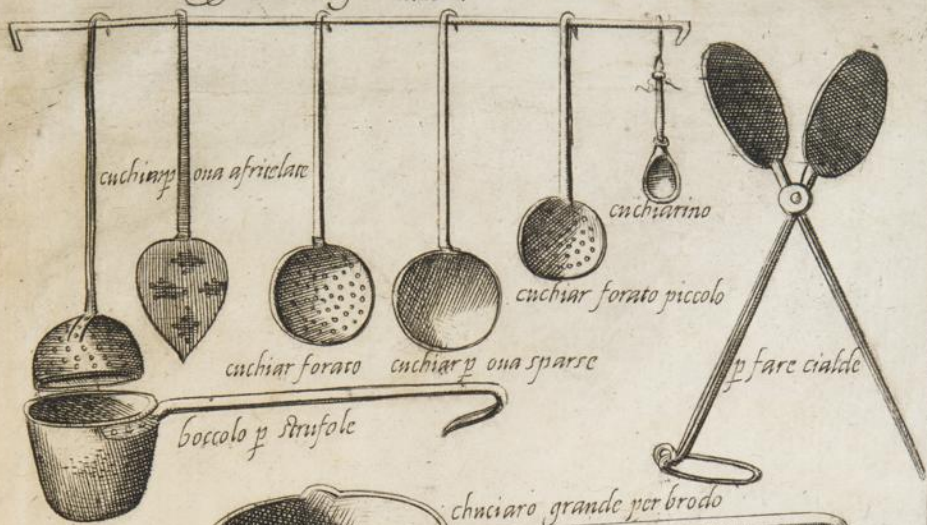 cuchiar ꝑ ova afritelate
cuchiarino
cuchiar forato piccolo
cuchiar forato
cuchiar ꝑ ova sparse
ꝑ fare cialde
boccolo ꝑ strufole
chuciaro grande per brodo